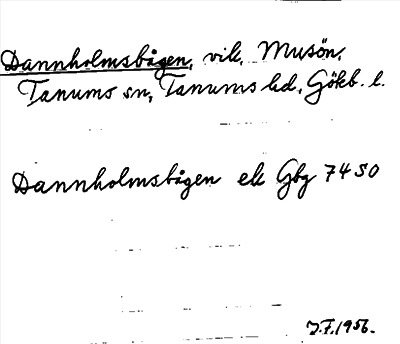 Dannholmsbågen, vik, Musön,
Tanums sn, Tanums hd, Göteb. l.
Dannholmsbågen ek Gbg 74 SO
J.F. 1956.